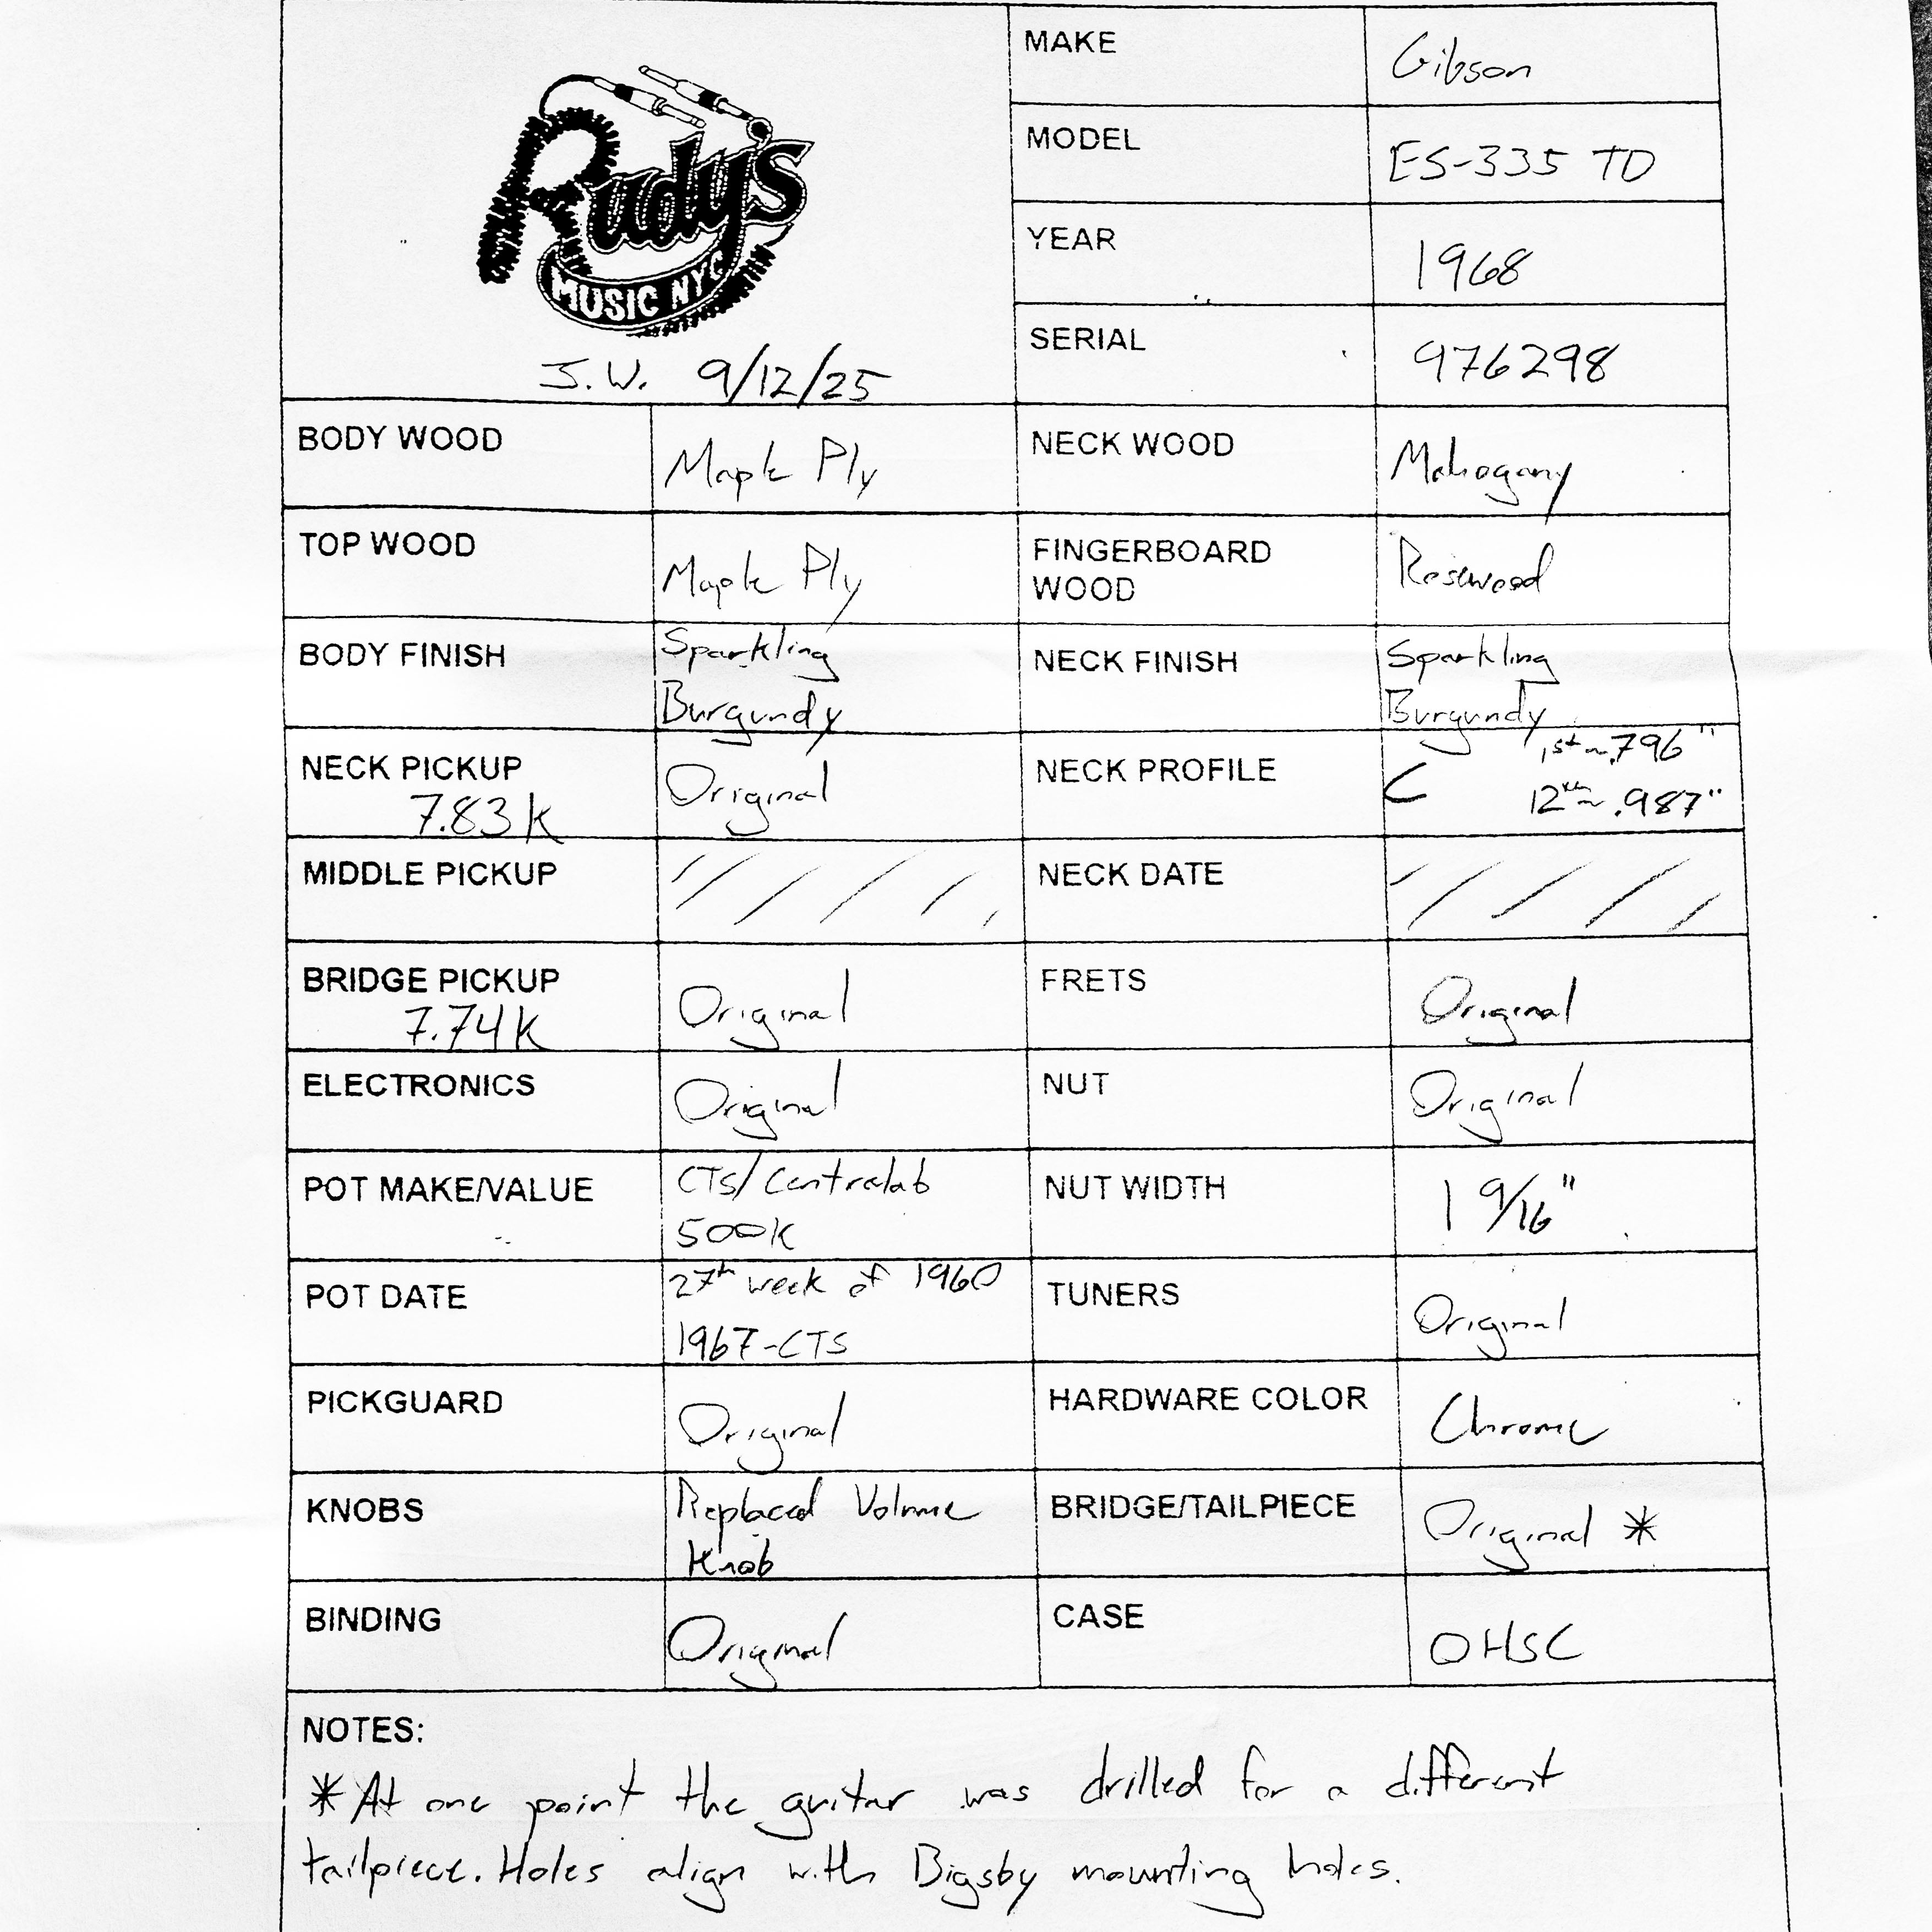 Rudy's
MUSIC NYC
J.W. 9/12/25
MAKE Gibson
MODEL ES-335 TD
YEAR 1968
SERIAL 976298
BODY WOOD Maple Ply NECK WOOD Mahogany
TOP WOOD Maple Ply FINGERBOARD WOOD Rosewood
BODY FINISH Sparkling Burgundy NECK FINISH Sparkling Burgundy
NECK PICKUP 7.83K Original NECK PROFILE C 1st ~ .796" 12th ~ .987"
MIDDLE PICKUP NECK DATE
BRIDGE PICKUP 7.74K Original FRETS Original
ELECTRONICS Original NUT Original
POT MAKE/VALUE CTS/Centralab 500K NUT WIDTH 1 9/16"
POT DATE 27th week of 1960 1967-CTS TUNERS Original
PICKGUARD Original HARDWARE COLOR Chrome
KNOBS Replaced Volume Knob BRIDGE/TAILPIECE Original *
BINDING Original CASE OHSC
NOTES:
* At one point the guitar was drilled for a different
tailpiece. Holes align with Bigsby mounting holes.